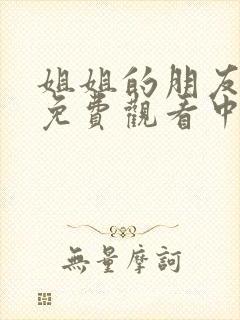 姐姐的朋友
免費觀看中
無量摩訶